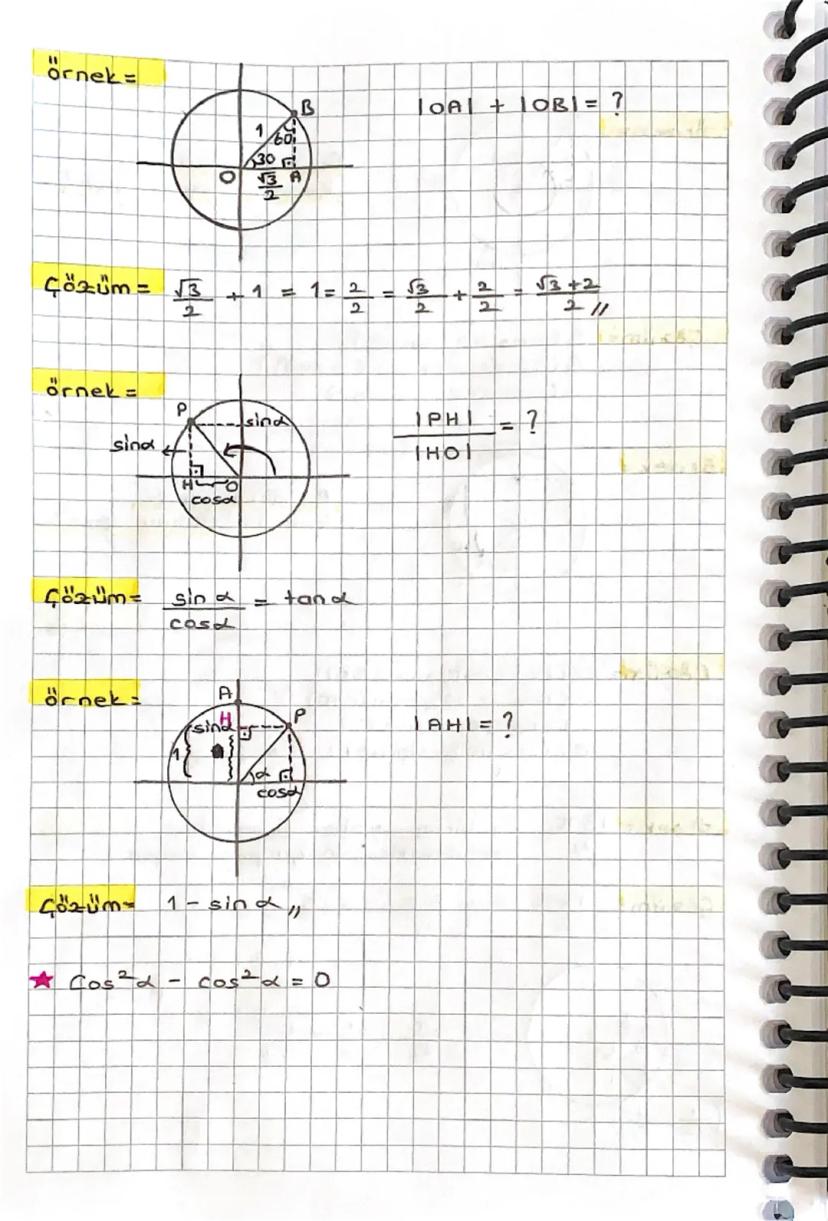 örnek =
|OA| + |OB| = ?
B
1
60
30
O
√3/2
A
Çözüm = √3/2 + 1 = 1 = 2/2 = √3/2 + 2/2 = √3+2/2 //
örnek =
|PH|/|HO| = ?
P
sinα
sinα
H
O
cosα
Çözüm = sin α/cosα = tanα
örnek =
|AH| = ?
A
H
P
sinα
1
α
cosα
Çözüm = 1 - sin α //
★ Cos²α - cos²α = 0